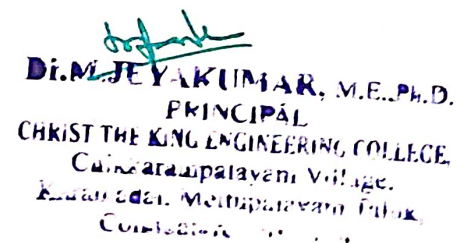 Dr.M.JEYAKUMAR, M.E.,Ph.D.
PRINCIPAL
CHRIST THE KING ENGINEERING COLLEGE,
Chikkarampalayam Village,
Karamadai, Mettupalayam Taluk,